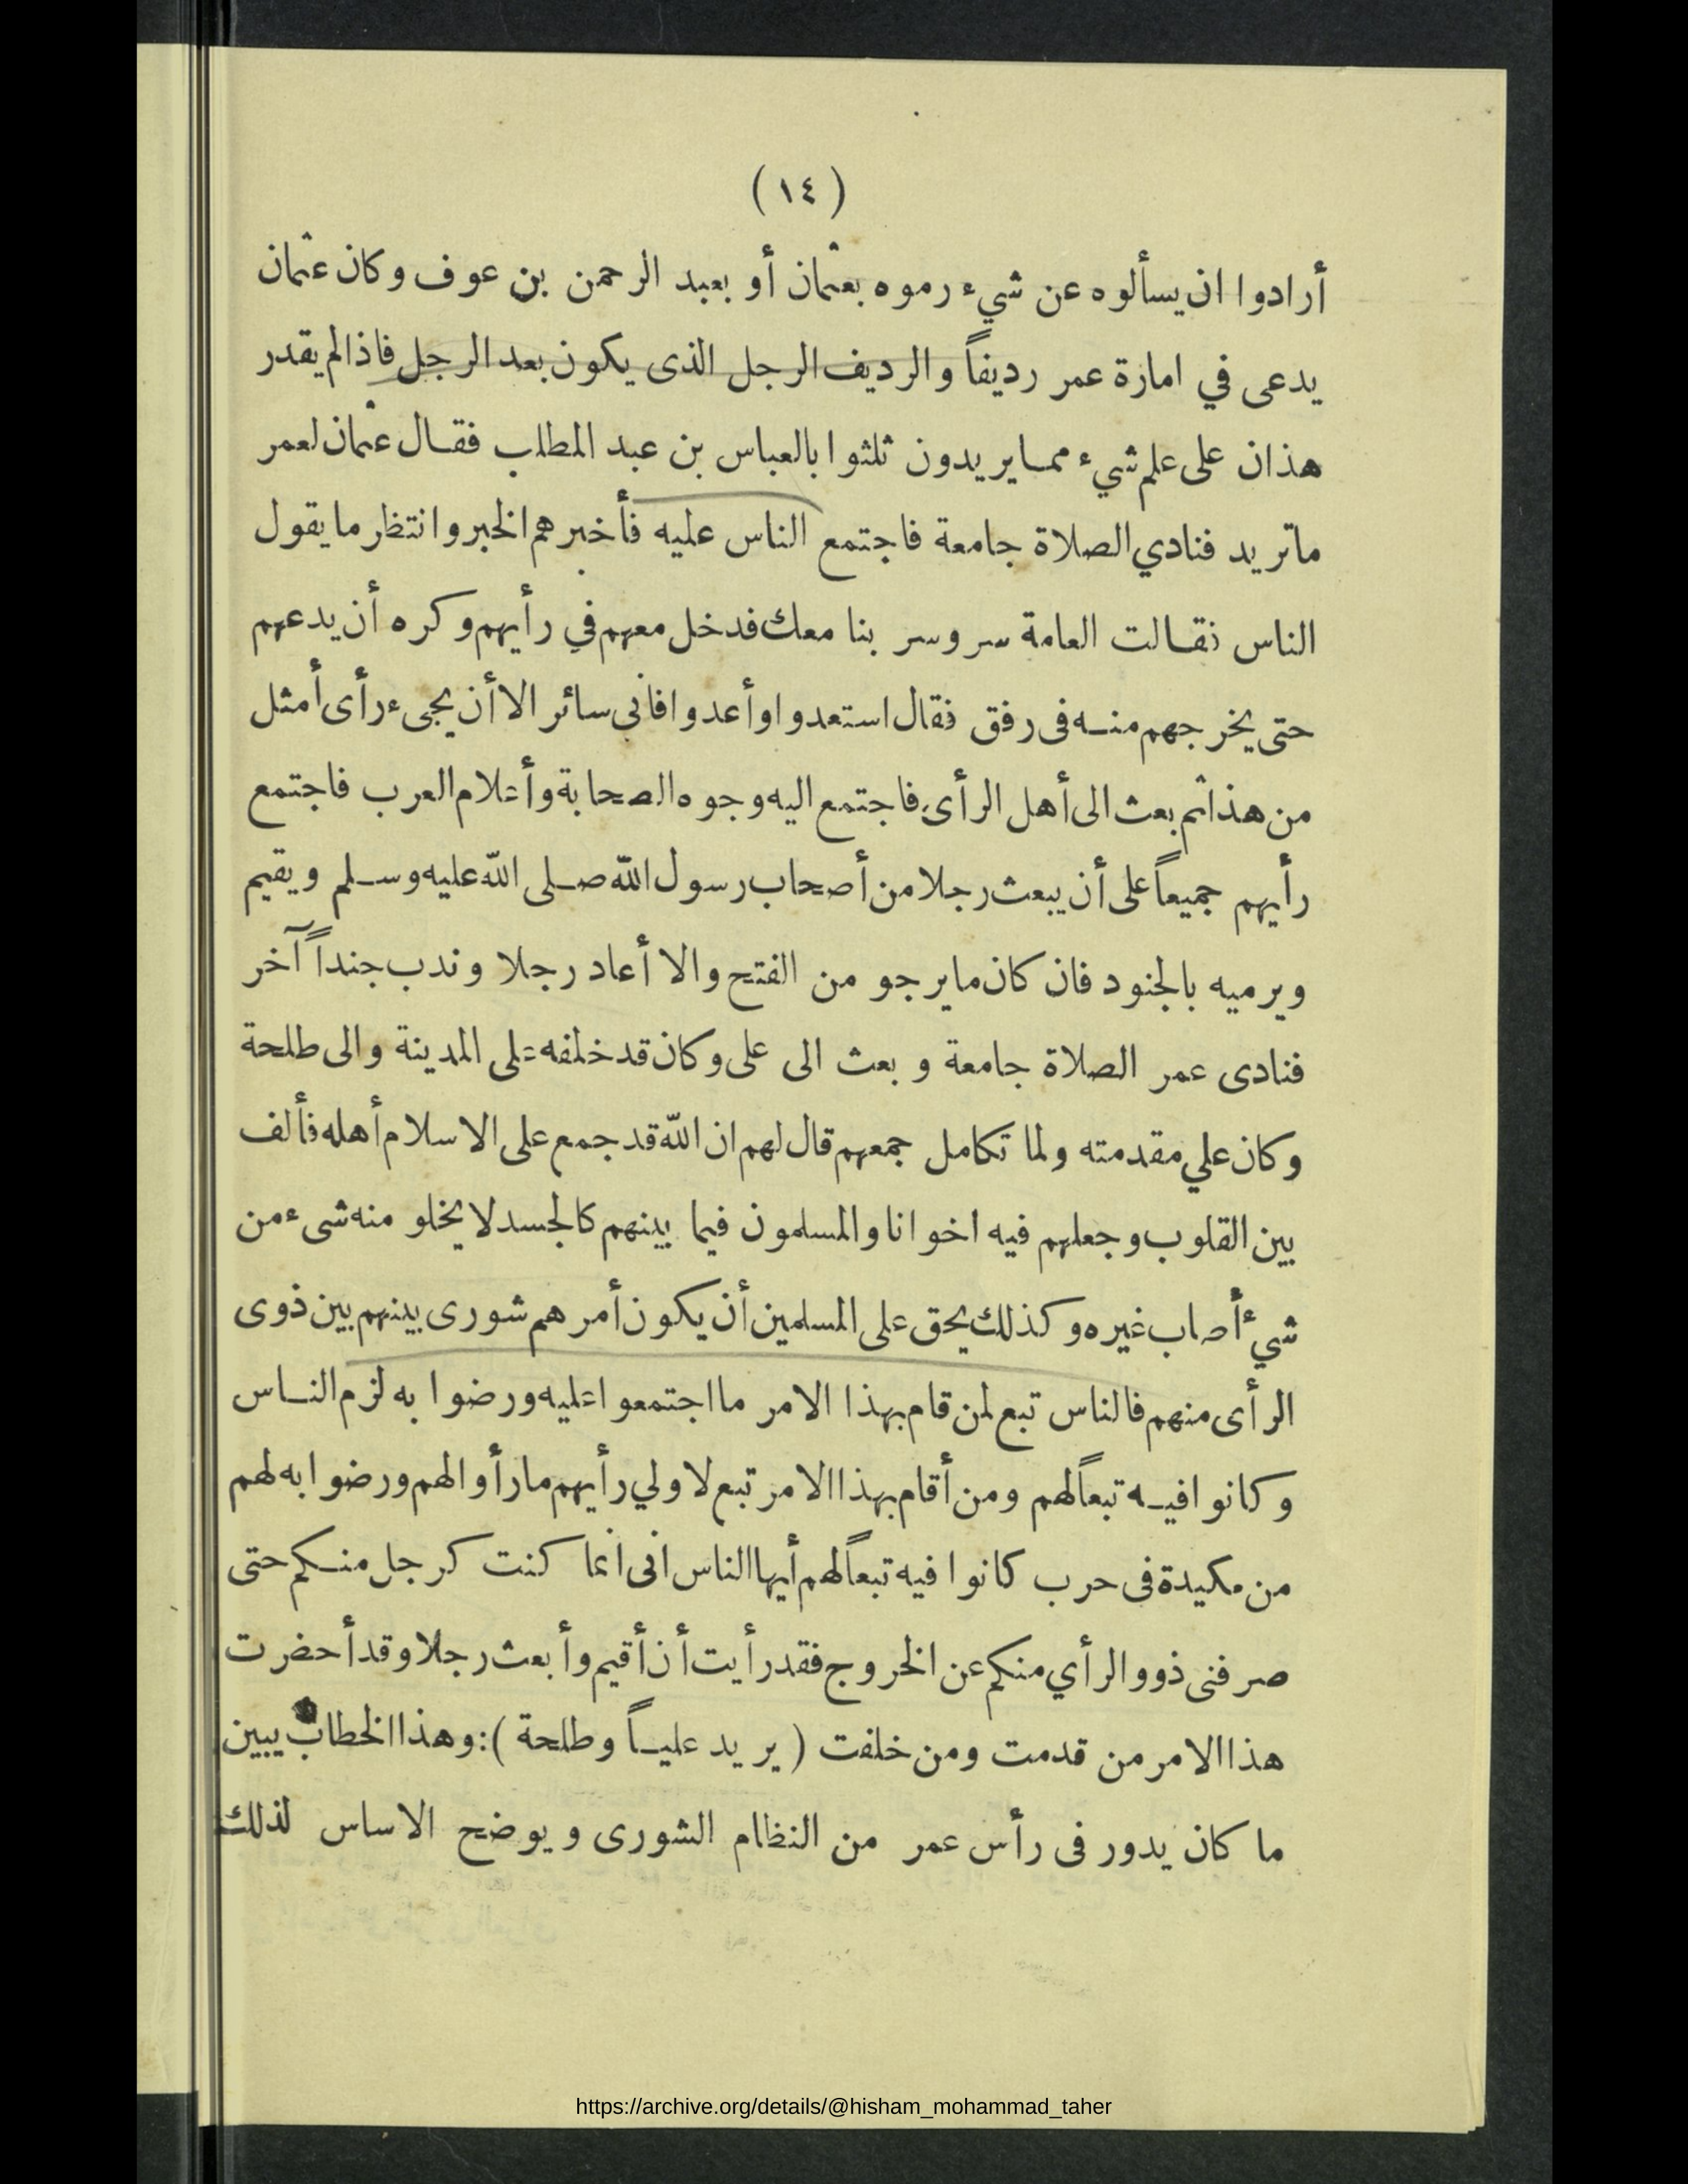 (١٤)
أرادوا ان يسألوه عن شيء رموه بعثمان أو بعبد الرحمن بن عوف وكان عثمان
يدعى في امارة عمر رديفاً والرديف الرجل الذى يكون بعد الرجل فاذا لم يقدر
هذان على علم شيء ممـا يريدون ثلثوا بالعباس بن عبد المطلب فقـال عثمان لعمر
ماتريد فنادي الصلاة جامعة فاجتمع الناس عليه فأخبرهم الخبر وانتظار ما يقول
الناس فقـالت العامة سر وسر بنا معك فدخل معهم في رأيهم وكره أن يدعهم
حتى يخرجهم منـه فى رفق فقال استعدوا وأعدوا فانى سائر الا أن يجىء رأى أمثل
من هذا ثم بعث الى أهل الرأى فاجتمع اليه وجوه الصحابة وأعلام العرب فاجتمع
رأيهم جميعاً على أن يبعث رجلا من أصحاب رسول الله صـلى الله عليه وسـلم ويقيم
ويرميه بالجنود فان كان ما يرجو من الفتح والا أعاد رجلا وندب جنداً آخر
فنادى عمر الصلاة جامعة وبعث الى على وكان قد خلفه على المدينة والى طلحة
وكان علي مقدمته ولما تكامل جمعهم قال لهم ان الله قد جمع على الاسلام أهله فألف
بين القلوب وجعلهم فيه اخوانا والمسلمون فيما بينهم كالجسد لا يخلو منه شىء من
شيء أصاب غيره وكذلك يحق على المسلمين أن يكون أمرهم شورى بينهم بين ذوى
الرأى منهم فالناس تبع لمن قام بهذا الامر ما اجتمعوا عليه ورضوا به لزم النـاس
وكانوا فيـه تبعاً لهم ومن أقام بهذا الامر تبع لاولي رأيهم ما رأوا لهم ورضوا به لهم
من مكيدة فى حرب كانوا فيه تبعاً لهم أيها الناس انى انما كنت كرجل منـكم حتى
صرفنى ذوو الرأي منكم عن الخروج فقد رأيت أن أقيم وأبعث رجلا وقد أحضرت
هذا الامر من قدمت ومن خلفت (يريد عليـاً وطلحة): وهذا الخطاب يبين
ما كان يدور فى رأس عمر من النظام الشورى ويوضح الاساس لذلك
https://archive.org/details/@hisham_mohammad_taher